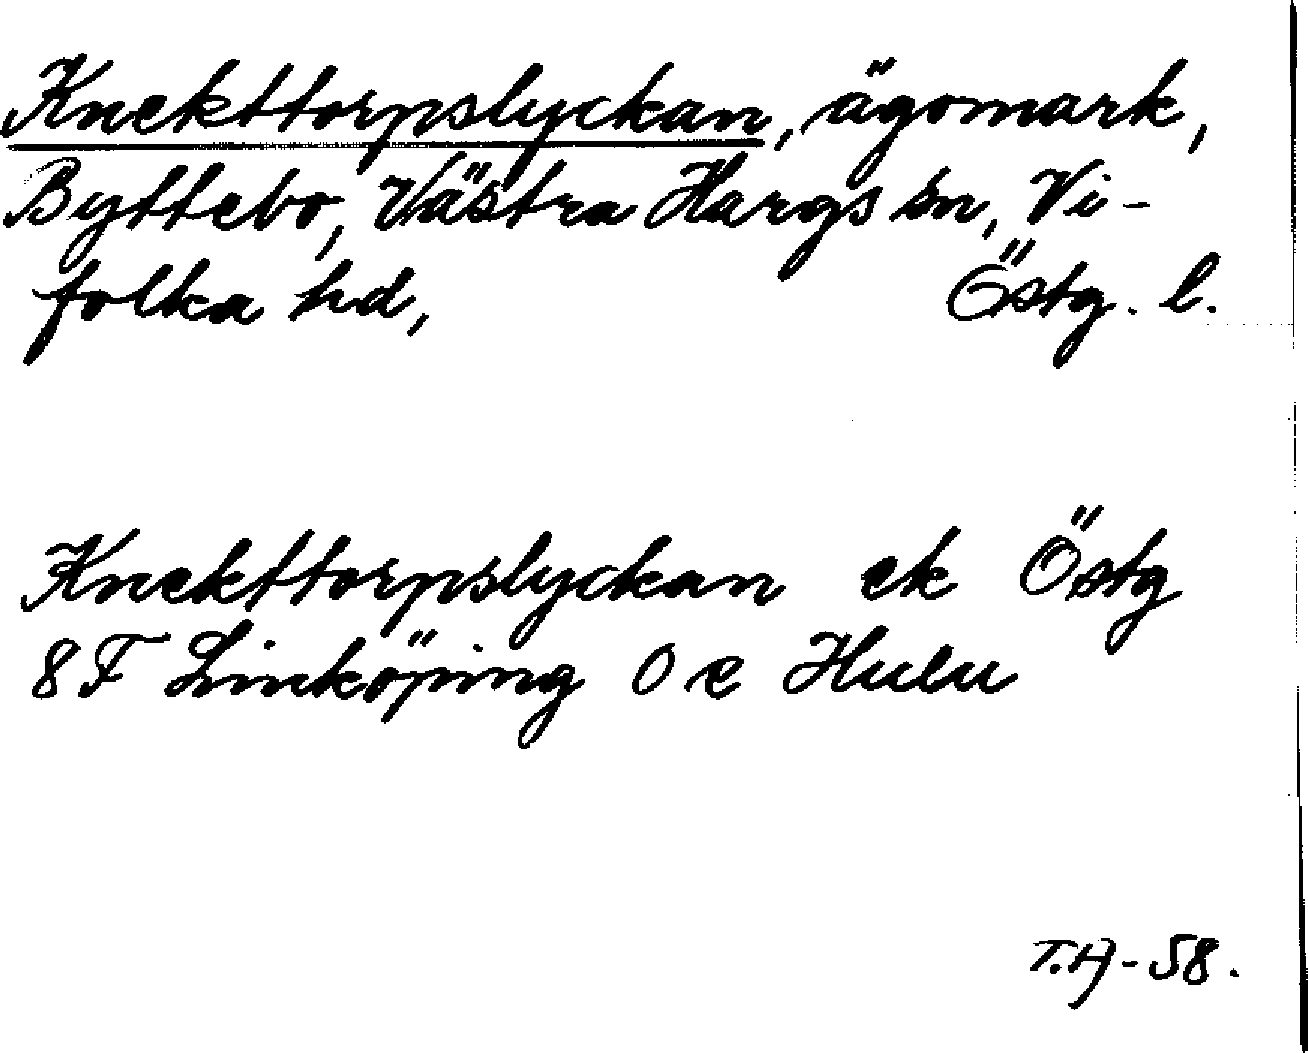 Knekttorpslyckan, ägomark,
Byttebo, Västra Hargs sn, Vi-
folka hd, Östg. l.
Knekttorpslyckan ek Östg
8F Linköping 0 e Hulu
T.A-58.